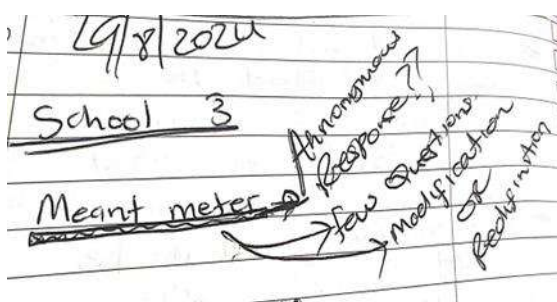 29/8/2024
School 3
Meant meter → Ahnonymous
Response??
→ few Questions.
→ modification
or
Redifinition